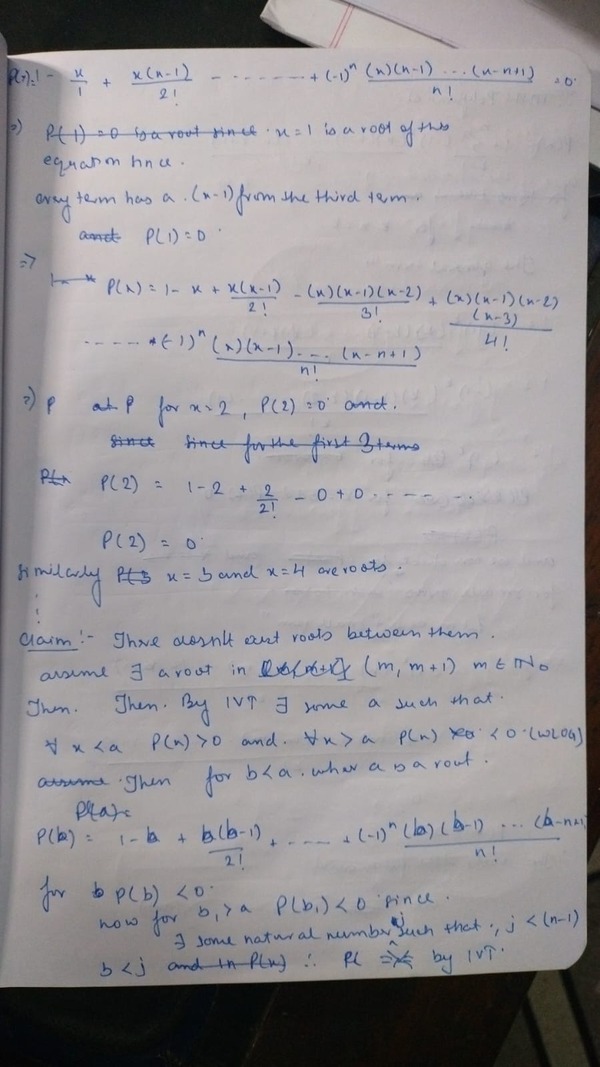 P(x)=1 - x/1 + x(x-1)/2! - ....... + (-1)^n (x)(x-1) ... (x-n+1)/n! = 0.
=) P(1)=0 is a root since. x=1 is a root of this
equation hnce.
every term has a (x-1) from the third term.
and P(1)=0
=> 1-x P(x) = 1- x + x(x-1)/2! - (x)(x-1)(x-2)/3! + (x)(x-1)(x-2)(x-3)/4!
..... + (-1)^n (x)(x-1) .... (x-n+1)/n!
=) P at P for x=2, P(2)=0 and.
since since for the first 3 terms
P(x P(2) = 1-2 + 2/2! - 0+0 ......
P(2) = 0.
similarly P(3 x=3 and x=4 are roots.
⋮
Claim :- There doesnt exist roots between them.
assume ∃ a root in (m, m+1) m ∈ ℕ₀
Then. Then. By IVT ∃ some a such that.
∀ x<a P(x)>0 and. ∀x>a P(x) <0. (WLOG)
assume. Then for b<a. wher a is a root.
P(a)=
P(b) = 1-b + b(b-1)/2! + ..... + (-1)^n (b)(b-1) ... (b-n+1)/n!
for b P(b) <0.
now for b₁>a P(b₁)<0 since.
∃ some natural number j such that., j<(n-1)
b<j and in P(x) ∴ P( => by IVT.